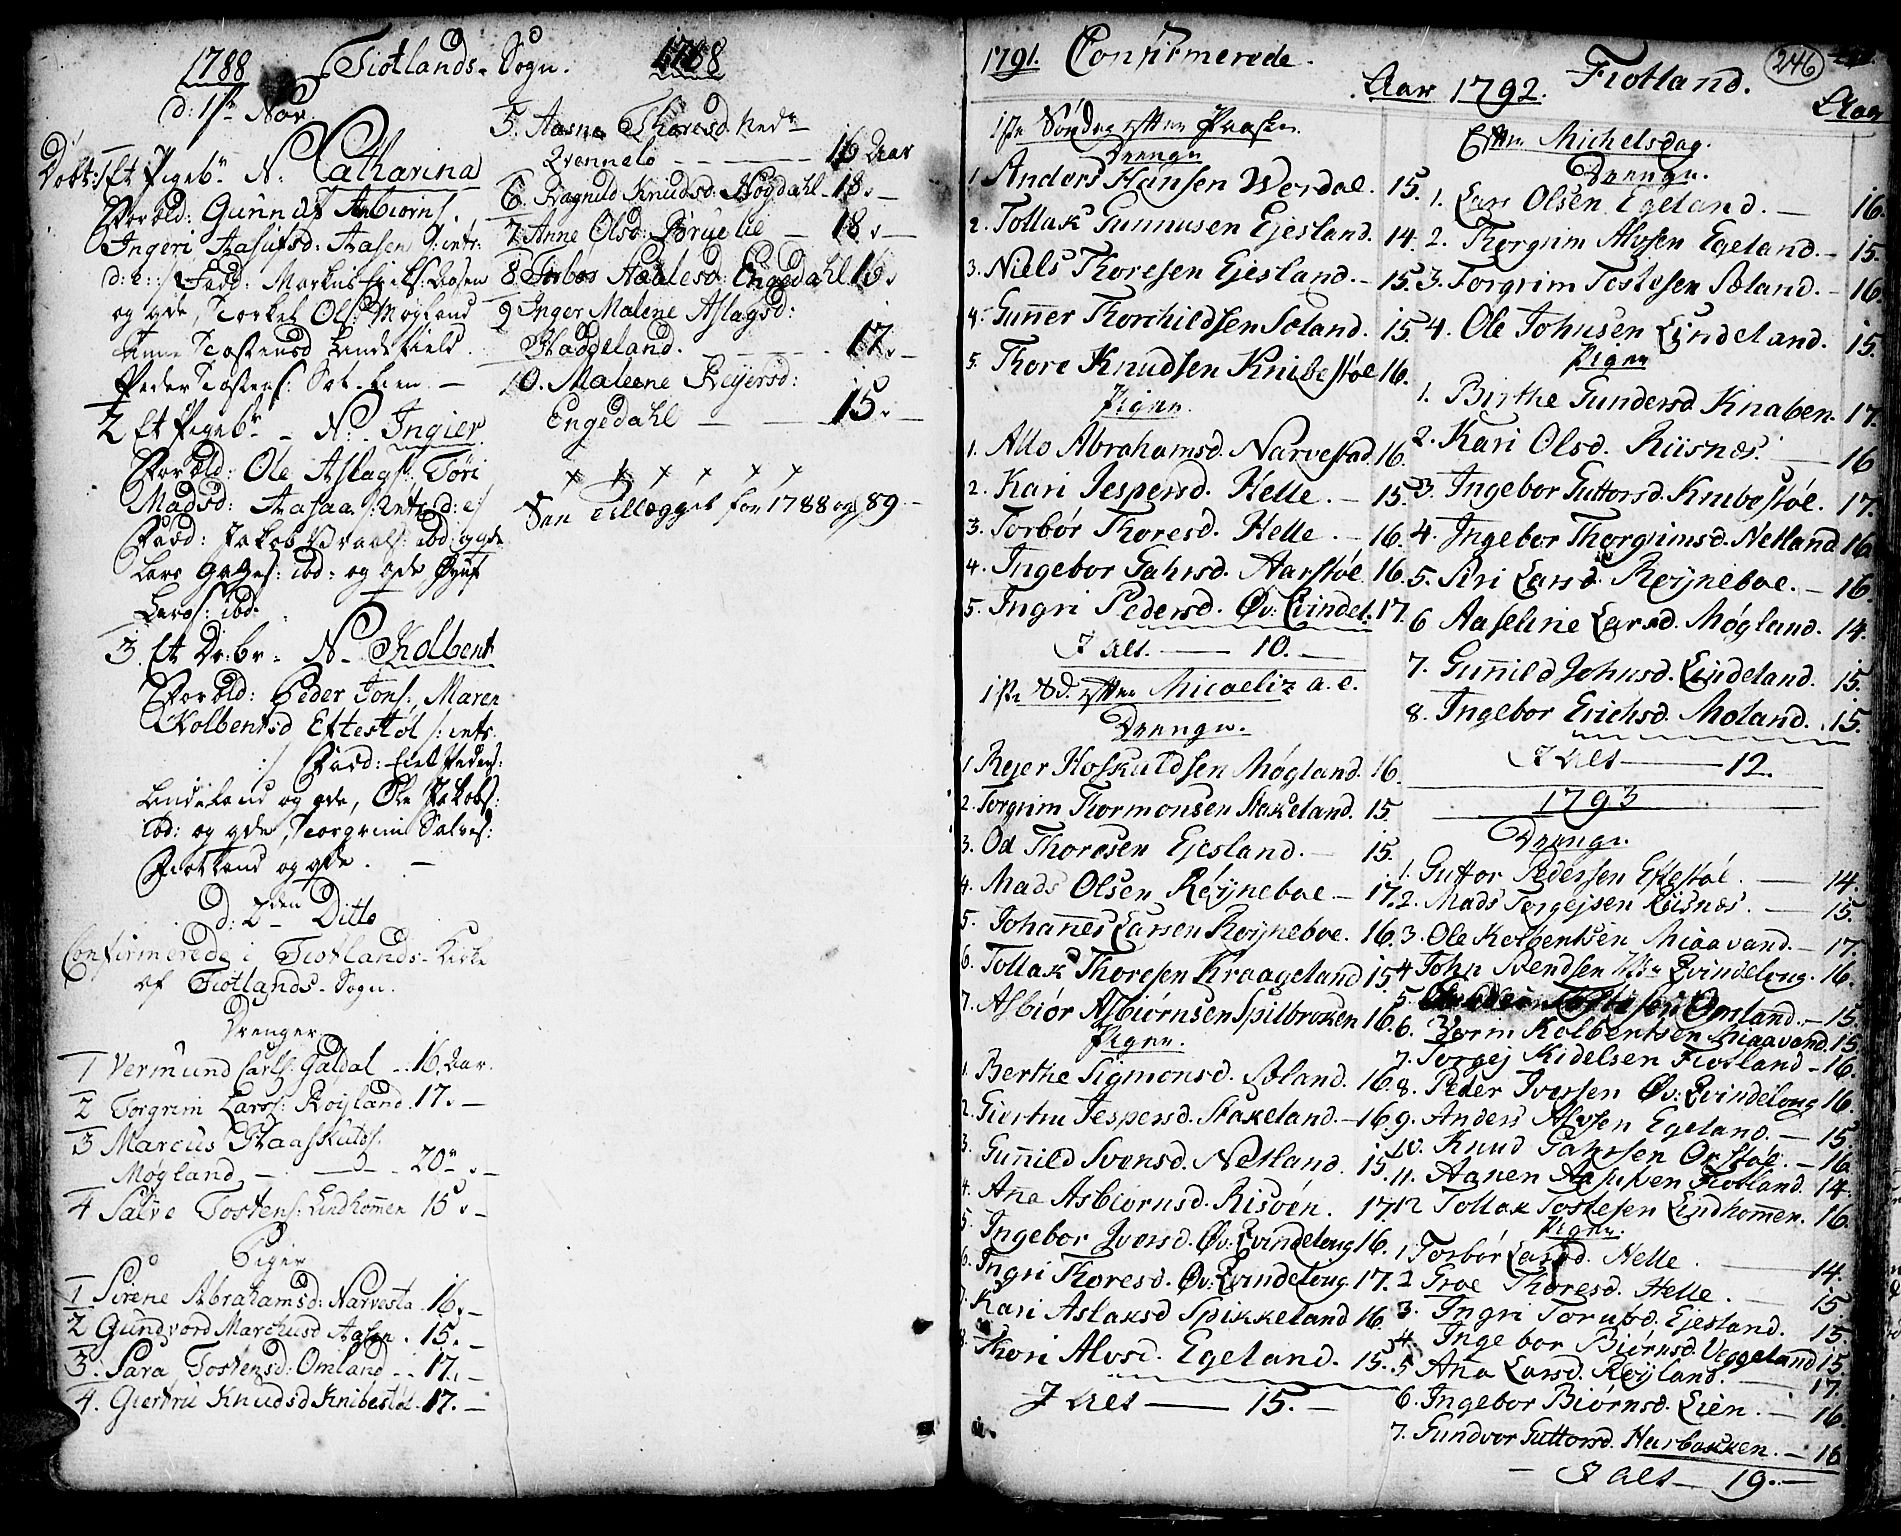 1788 Fiotlands Sogn. 1788
d: 1ste Nov
Døbt: 1 Et Pigeb: N: Catharina
Foræld: Gunnar Anbiørns.
Ingeri Aasulfsd: Aasen /: intr:
d: e: :/ Fadd: Markus Eriks: Aasen
og qde, Torkel Ols: Møgland
Anne Tostensd Lindefield.
Peder Tostens: Set. Lien. —
2 Et Pigeb: N: Ingier
Foræld: Ole Aslags: Tøri
Madsd: Aasaa /: intr: d: e:/
Fadd: Jakob ibd: og qde
Lars ibd: og qde
Lars: ibd:
3. Et Dr: br: N. Kolbent
Foræld: Peder Jons: Maren
Kolbentsd Eftestøl /: intr.
:/ Fadd: Peders:
Lindeland og qde, Ole Jakobs:
ibd: og qde, Torgrim Salves:
Fiotland og qde. —
d: 2den Ditto
Confirmerede i Fiotlands Kirke
af Fiotlands Sogn.
Drenger
1 Vermund Carls: Galdal .. 16 Aar.
2 Torgrim Lars: Røyland. 17. —
3 Marcus Haaskulds.
Møgland — — 20. —
4 Salve Tostens: Lindhommen 15. —
Piger
1 Sirene Abrahamsd: Narvesta. 16. —
2 Gundvord Marchusd Aasen. 15. —
3. Sara Tostensd: Omland .. 17. —
4. Giertru Knudsd Knibestøl. 17. —
5. Aasne Thoresd Nedr
Qvennelo — — — 16 Aar
6. Ragnild Knudsd: Høgdahl. 18. —
7. Anne Olsd: — 18. —
8. Torbor Engedahl 16.
9 Inger Malene Aslagsd:
Haddeland. — — 17. —
10. Maleene Reijersd:
Engedahl — — 15. —
x x x x x x
See tillægget for 1788 og 89 —
1791. Confirmerede.
1ste Søndag efter Paaske.
Drenge
1 Anders Hansen Werdal. 15.
2. Tollak Gunnusen Ejesland. 14.
3. Niels Thoresen Ejesland. — 15.
4. Gunner Thorchildsen Sæland. 15.
5. Thore Knudsen Knibestøl 16.
Piger.
1. Allo Abrahamsd. Narvestad. 16.
2. Kari Jespersd. Helle. — 15.
3. Torbør Thoresd. Helle. — 16.
4. Ingebor Gahrsd. Aarstøl. 16.
5. Ingri Pedersd. Øv: Qvindel. 17.
I Alt. — 10. —
1ste Sd. efter Micaelis a. c.
Drenge.
1 Rejer Hoskuldsen Møgland. 16.
2. Torgrim Thormonsen Stakeland. 15.
3. Od Thoresen Ejesland. — 15.
4. Mads Olsen Røyneboe — 17.
5. Johannes Larsen Røyneboe. 16.
6. Tollak Thoresen Kraageland 15
7. Asbiør Asbiørnsen Spilbroken 16.
Piger.
1. Berthe Sigmonsd. Sæland. 16.
2. Giertru Jespersd. Stakeland. — 16.
3. Gunnild Svensd. Netland. 15.
4. Ana Asbiornsd. Risøen. 17.
5. Ingebor Iversd. Øv: Qvindeloug 16.
6. Ingri Thoresd. Øv: Qvindeloug. 17.
7. Kari Aslaksd Spikkeland 16.
8. Thori Alvsd. Egeland. 15.
I Alt — 15. —
Aar 1792. Fiotland. 246
Aar
Efter Michelsdag.
Drenge.
1. Lars Olsen Egeland. — 16.
2. Thorgrim Alvsen Egeland. — 15.
3. Torgrim Tostesen Sæland. — 16.
4. Ole Johnsen Lindeland. 15.
Piger
1. Birthe Gundersd Knaben. 17.
2. Kari Olsd. Riisnes. — 16
3. Ingebor Guttorsd. Knibestøl. 17.
4. Ingebor Thorgrimsd. Netland 16.
5. Siri Larsd. Røyneboe. — 16.
6 Aaseline Larsd. Møgland. 14.
7. Gunnild Johnsd. Lindeland. 15.
8. Ingebor Erichsd. Moland. 15.
I Alt — 12.
1793
Drenge.
1. Guttor Pedersen Eftestøl. — 14.
2. Mads Torgejsen Riisnes. — 15.
3. Ole Kolbentsen Miaavand. — 17.
4 John Svendsen Qvindeloug. 16.
5. Omland. — 15.
6. Kolbentsen Miaavand. 15
7. Torgej Kidelsen Fiotland — 16.
8. Peder Iversen Øv: Qvindeloug 16.
9. Anders Alvsen Egeland. — 15.
10. Knud Gahrsen Orstøl. — 16
11. Aanen Fiotland. 14.
12 Tollak Tostesen Lindhommen. 16.
Piger.
1. Torbør Larsd. Helle. — 14.
2 Groe Thoresd. Helle. — 15
3. Ingri Torufsd. Ejesland. 15.
4 Ingebor Biørnsd. Veggeland 15.
5 Ana Larsd. Røyland. — 17.
6. Ingebor Biørnsd. Lien. — 16
7. Gundvor Guttorsd. Harbakken. — 16
I Alt — 19. —